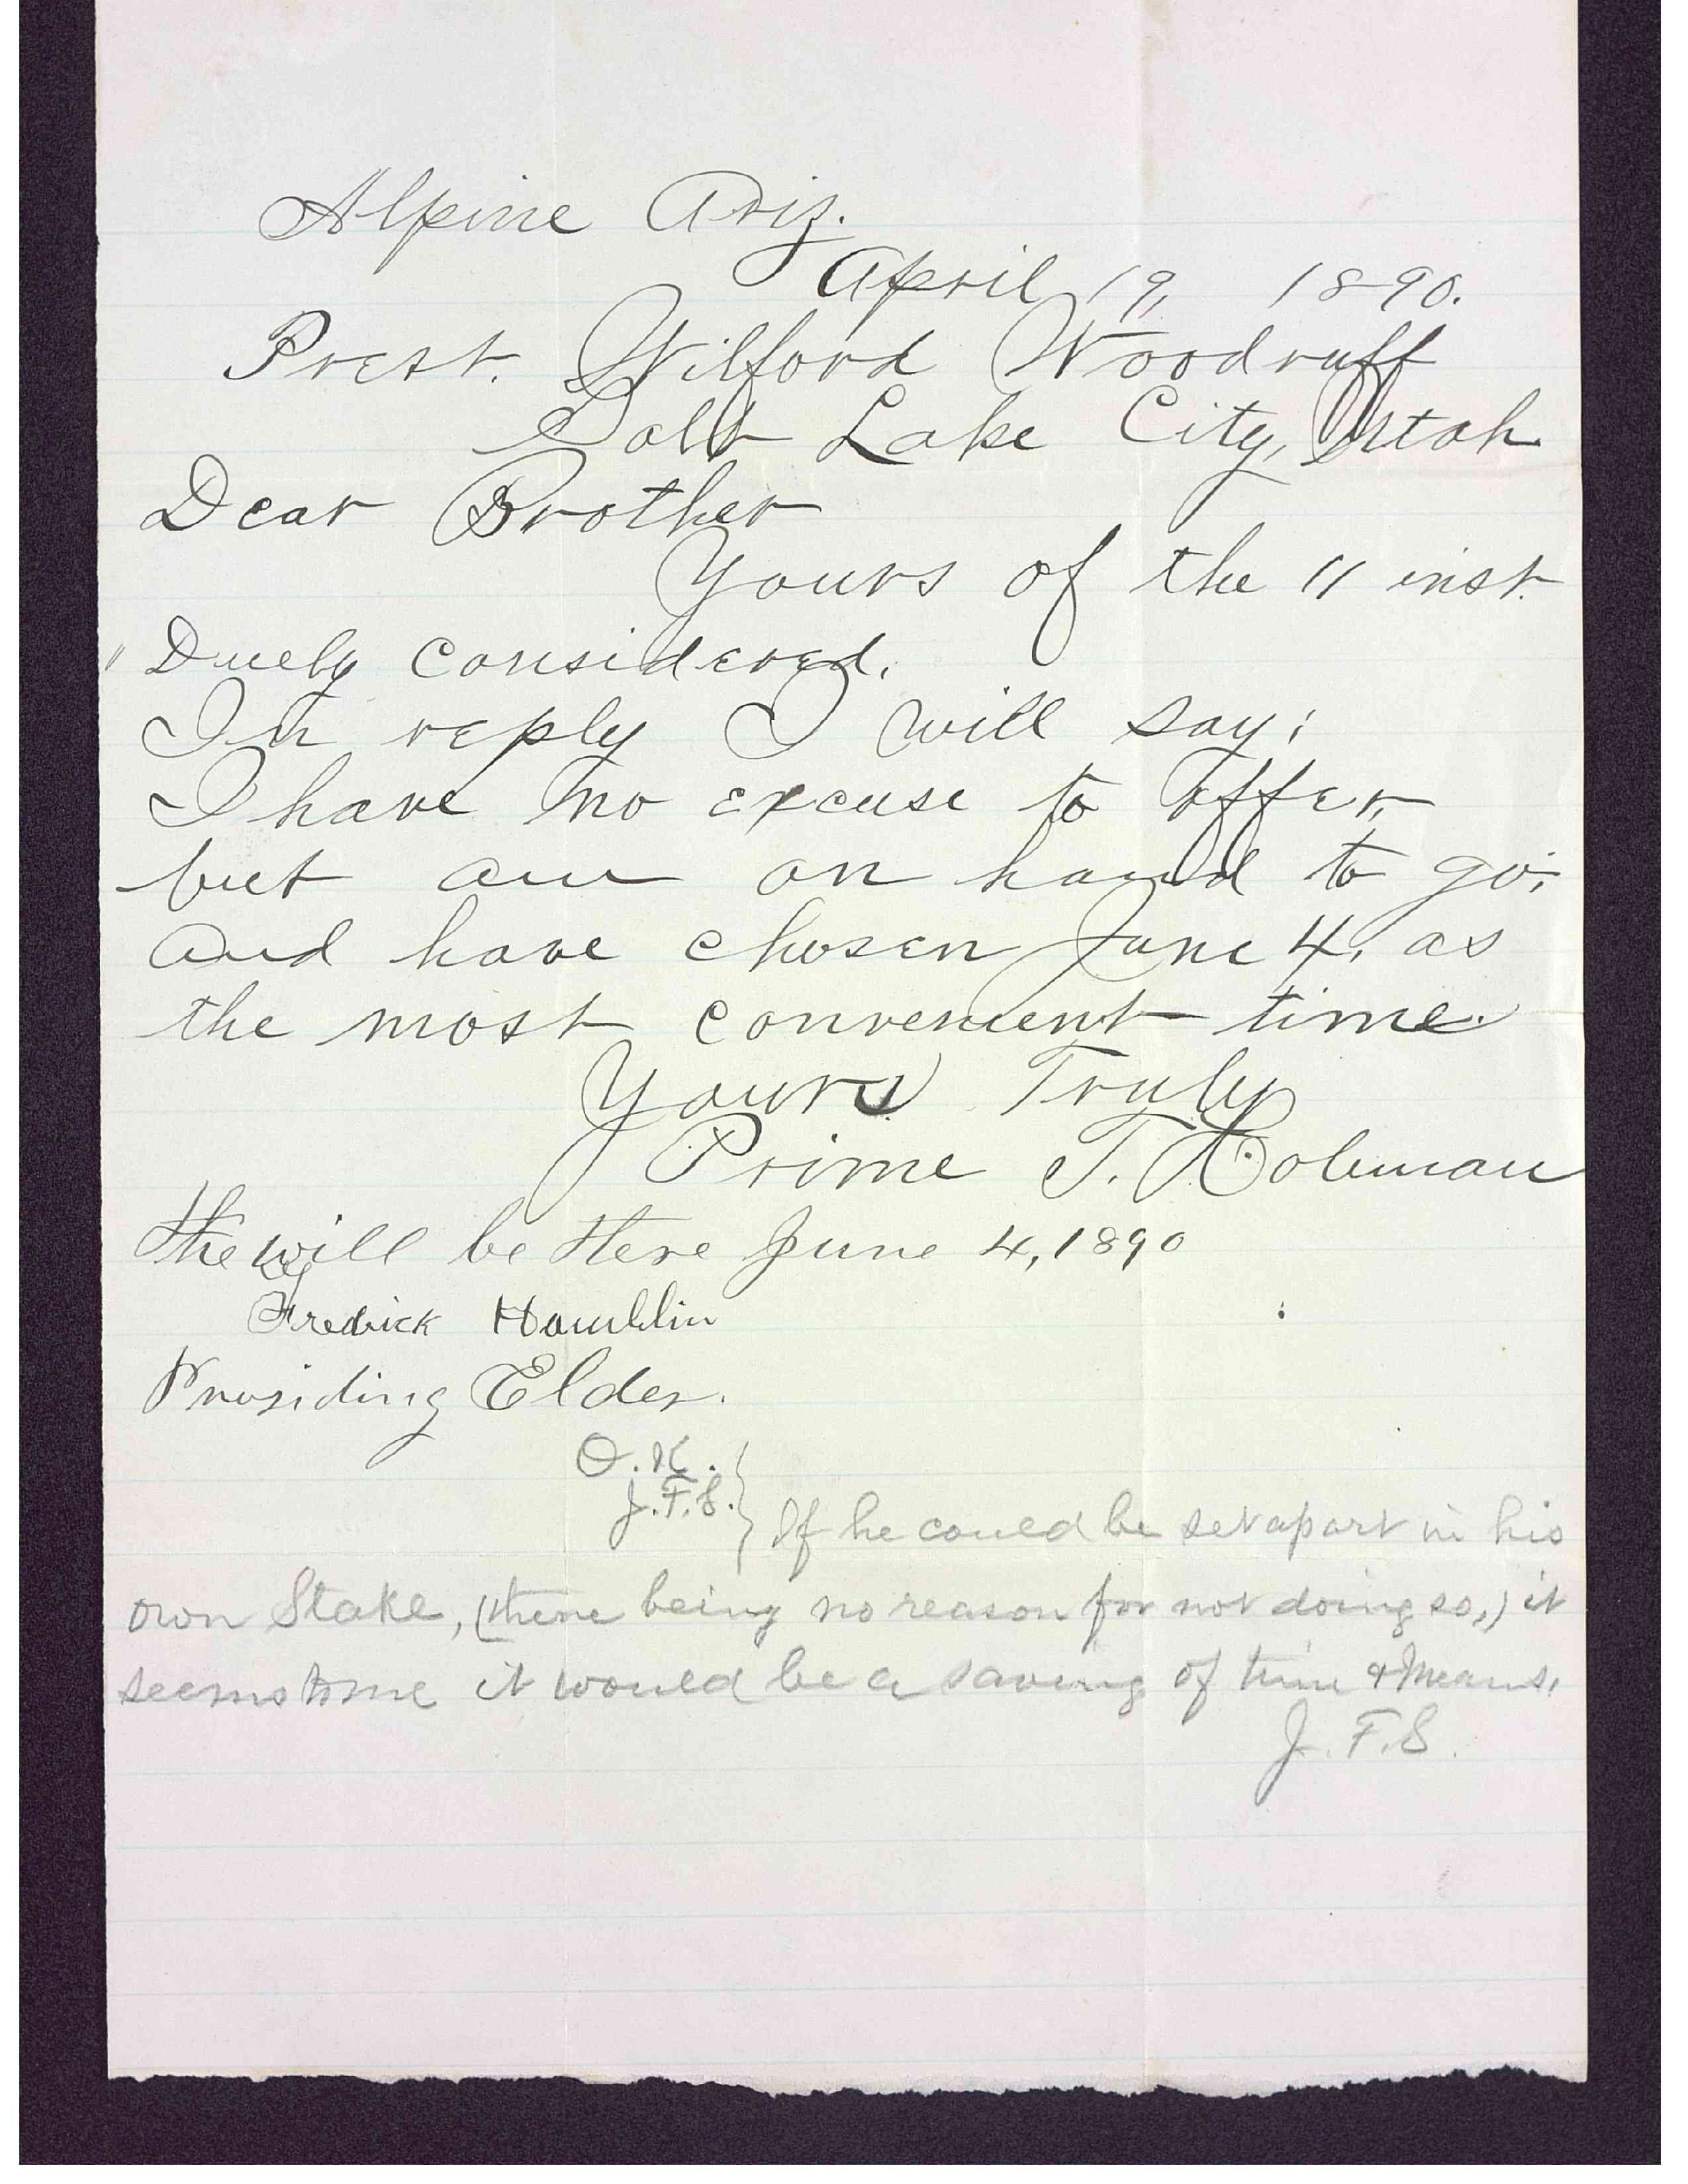 Alpine Ariz.
April 19, 1890.
Prest. Wilford Woodruff
Salt Lake City, Utah.
Dear Brother
Yours of the 11 inst.
" Duely considered.
In reply I will say;
I have no excuse to offer,
but am on hand to go;
and have chosen June 4, as
the most convenient time.
Yours Truly
Prime T. Coleman
He will be there June 4, 1890
Fredrick Hamblin
Presiding Elder.
O.K.
J.F.S. } If he could be set apart in his
own Stake, (there being no reason for not doing so,) it
seems to me it would be a saving of time & means.
J. F. S.